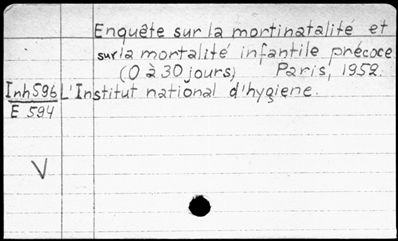 Enquête sur la mortinatalité et
sur la mortalité infantile précoce
(0 à 30 jours) Paris, 1952.
Inh596 L'Institut national d'hygiene.
E 594
V